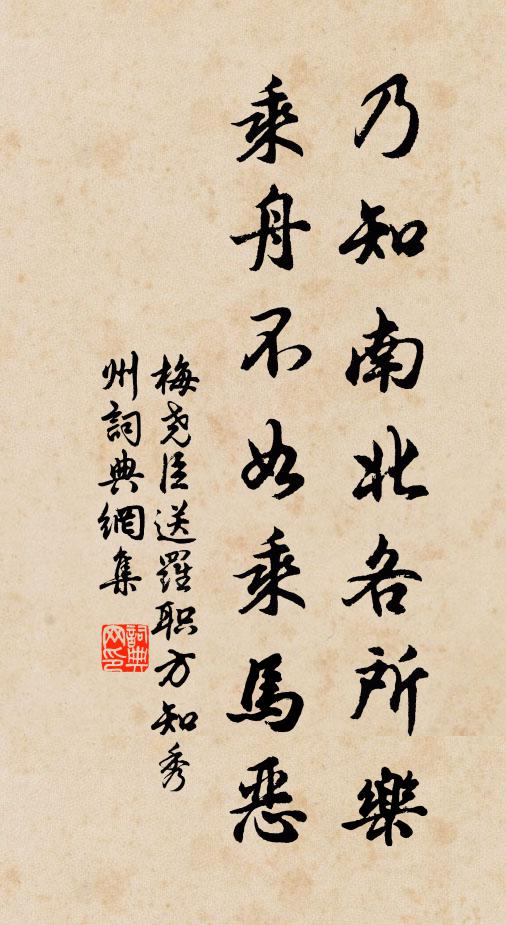 乃知南北各所樂
乘舟不如乘馬惡
梅尧臣送羅职方知秀
州詞典網集
詞典
网印